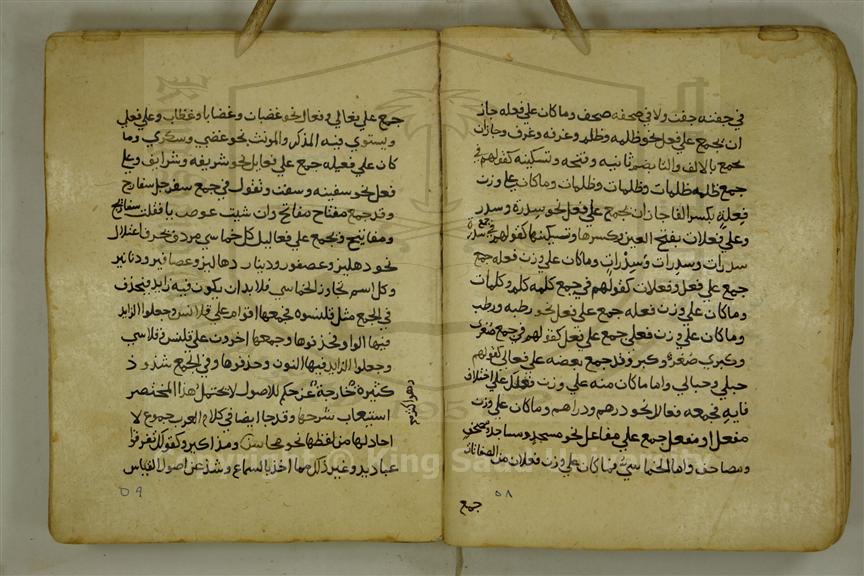 في جفنه جفت ولا في صحفه صحف وما كان علي فعله جاز
ان يجمع علي فعل نحو ظلمه وظلم وغرفه وغرف وجازات
يجمع بالالف والتا بضم ثانيه وفتحه وتسكينه كقولهم في
جمع ظلمه ظلمات وظلمات وظلمات وما كان علي وزن
فعله بكسر الفا جاز ان يجمع علي فعل نحو سدرة وسدر
وعلي فعلات بفتح العين وكسرها وتسكينها كقولهم في جمع سدرة
سدرات وسدرات وسدرات وما كان علي وزن فعله جمع
جمع علي فعل وفعلات كقولهم في جمع كلمه كلم وكلمات
وما كان علي وزن فعله جمع علي فعل نحو رطبه ورطب
وما كان علي وزن فعلي جمع علي فعل كقولهم في جمع صغري
وكبري صغر وكبر وقد جمع بعضه علي فعالي كقولهم
حبلي وحبالي واما ما كان منه علي وزن فعلل علي اختلاف
فايه فجمعه فعالل نحو درهم ودراهم وما كان علي وزن
مفعل او مفعل جمع علي مفاعل نحو مسجد ومساجد ومصحف
ومصاحف واما الخماسي فما كان علي وزن فعلان من الصفات
جمع
٥٨
جمع علي فعالي وفعال نحو غضبان وغضابا وغضاب وعلي فعلي
ويستوي فيه المذكر والمونث نحو غضبي وسكري وما
كان علي فعيله جمع علي فعايل نحو شريفه وشرايف وعلي
فعل نحو سفينه وسفن وتقول في جمع سفرجل سفارج
وقد جمع مفتاح مفاتح وان شيت عوضت يا فقلت سفاريج
ومفاتيح ويجمع علي فعاليل كل خماسي مردف بحرف اعتلال
نحو دهليز وعصفور ودينار دهاليز وعصافير ودنانير
وكل اسم تجاوز الخماسي فلا بد ان يكون فيه زايد فيحذف
في الجمع مثل قلنسوه فجمعها اقوام علي قلانس وجعلوا الزايد
فيها الواو فحذفوها وجمعها اخرون علي قلنس وقلاسي
وجعلوا الزايد فيها النون وحذفوها وفي الجمع شذوذ
كثيرة خارجة عن حكم الاصول لا يحتمل هذا المختصر
استيعاب شرحها وقد جا ايضا في كلام العرب جموع لا
احاد لها من لفظها نحو محاسن ومذاكير وكقولك تفرقوا
عباديد وغير ذلك مما اخذ بالسماع وشذ عن اصول القياس
٥٩
© King Saud University